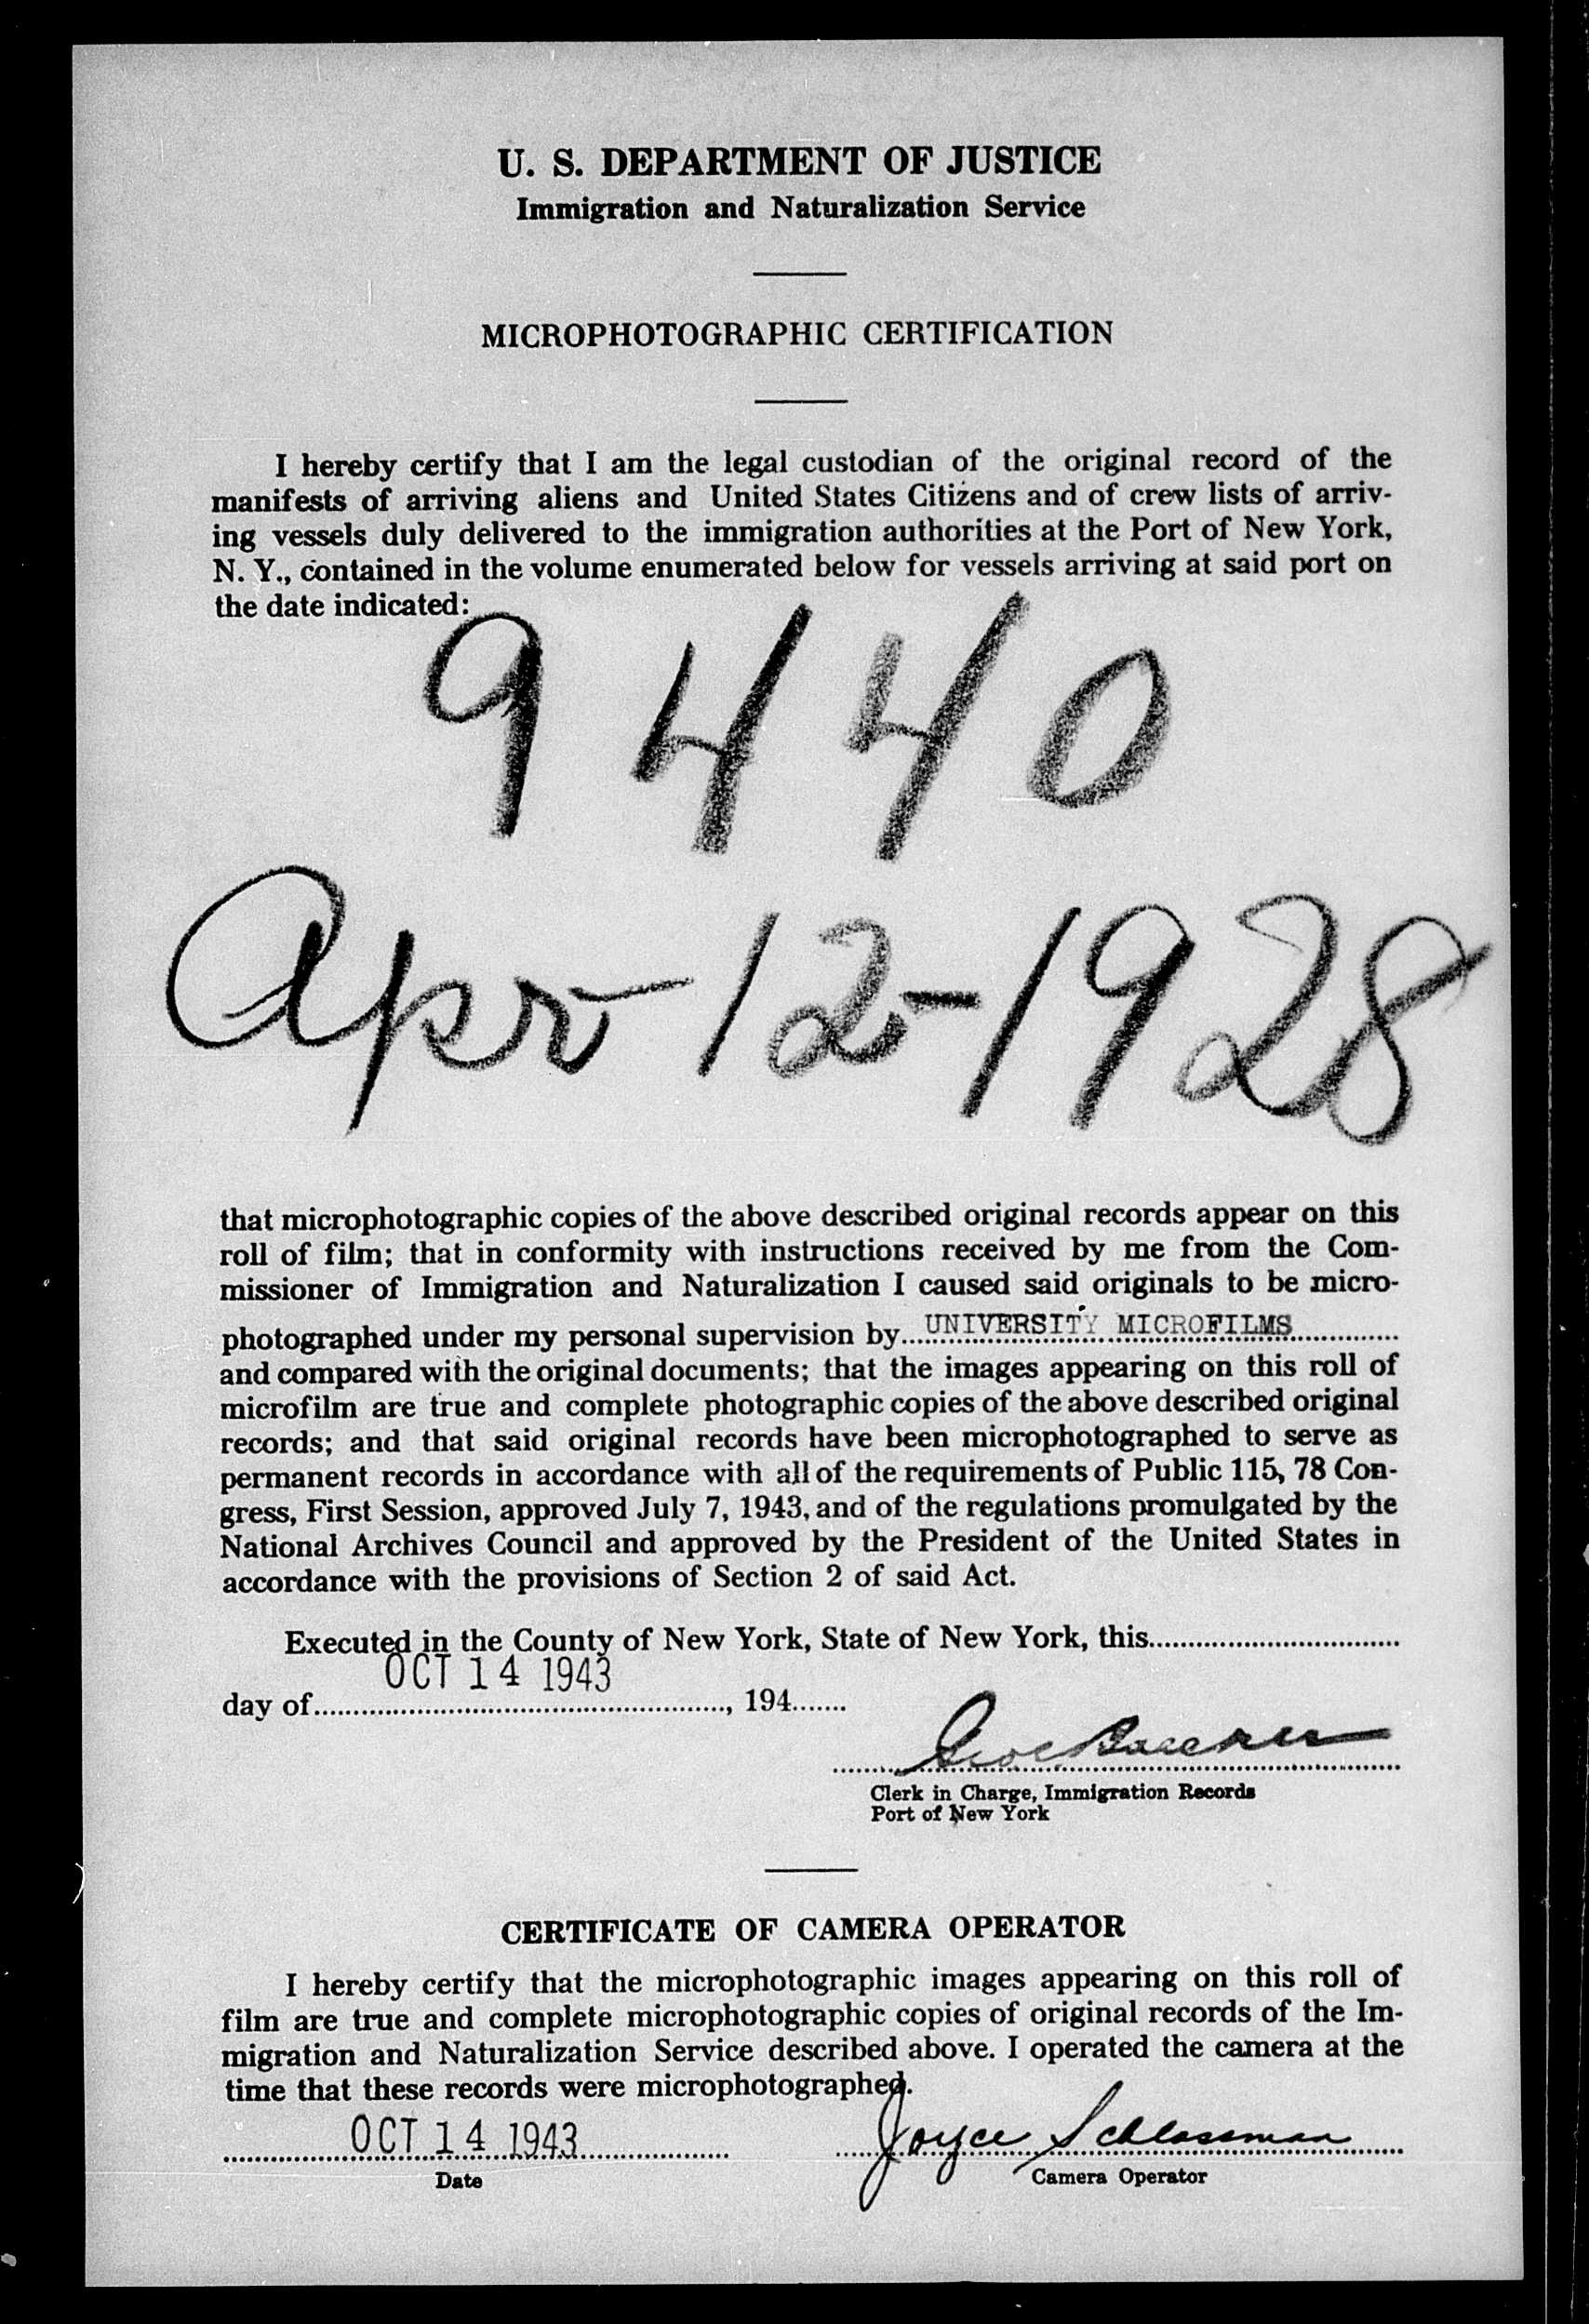 U. S. DEPARTMENT OF JUSTICE
Immigration and Naturalization Service
MICROPHOTOGRAPHIC CERTIFICATION
I hereby certify that I am the legal custodian of the original record of the
manifests of arriving aliens and United States Citizens and of crew lists of arriv-
ing vessels duly delivered to the immigration authorities at the Port of New York,
N. Y., contained in the volume enumerated below for vessels arriving at said port on
the date indicated:
9440
Apr-12-1928
that microphotographic copies of the above described original records appear on this
roll of film; that in conformity with instructions received by me from the Com-
missioner of Immigration and Naturalization I caused said originals to be micro-
photographed under my personal supervision by UNIVERSITY MICROFILMS
and compared with the original documents; that the images appearing on this roll of
microfilm are true and complete photographic copies of the above described original
records; and that said original records have been microphotographed to serve as
permanent records in accordance with all of the requirements of Public 115, 78 Con-
gress, First Session, approved July 7, 1943, and of the regulations promulgated by the
National Archives Council and approved by the President of the United States in
accordance with the provisions of Section 2 of said Act.
Executed in the County of New York, State of New York, this
OCT 14 1943
day of , 194
Clerk in Charge, Immigration Records
Port of New York
CERTIFICATE OF CAMERA OPERATOR
I hereby certify that the microphotographic images appearing on this roll of
film are true and complete microphotographic copies of original records of the Im-
migration and Naturalization Service described above. I operated the camera at the
time that these records were microphotographed.
OCT 14 1943 Joyce Schlossman
Date Camera Operator